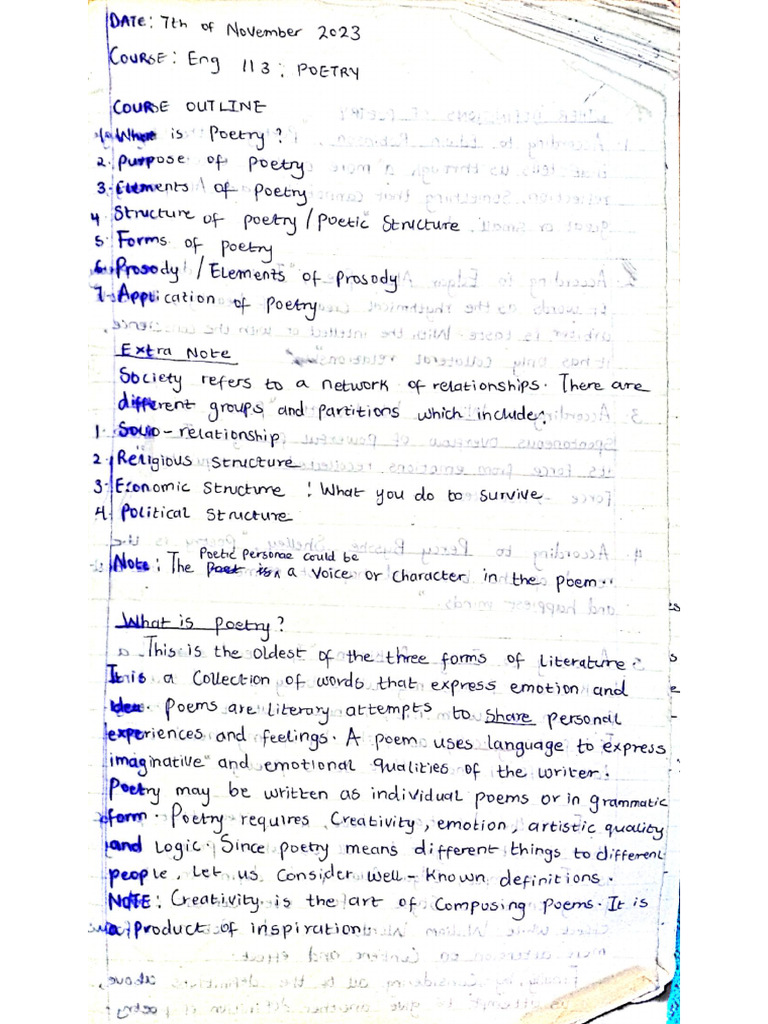 DATE: 7th of November 2023
COURSE: Eng 113: POETRY
COURSE OUTLINE
1. What is Poetry?
2. Purpose of Poetry
3. Elements of Poetry
4 Structure of poetry/Poetic Structure
5 Forms of poetry
6. Prosody/Elements of Prosody
7. Application of Poetry
Extra Note
Society refers to a network of relationships. There are
different groups and partitions which include:
1. Socio-relationship
2. Religious Structure
3. Economic Structure : What you do to survive
4. Political Structure
Poetic Personae could be
Note: The a Voice or Character in the poem..
What is Poetry?
This is the oldest of the three forms of literature
It is a Collection of words that express emotion and
Idea. Poems are literary attempts to share personal
experiences and feelings. A poem uses language to express
imaginative and emotional qualities of the writer.
Poetry may be written as individual poems or in grammatic
form. Poetry requires Creativity, emotion, artistic quality
and Logic. Since poetry means different things to different
people, Let us Consider well-known definitions.
NOTE: Creativity is the art of Composing poems. It is
a product of inspiration